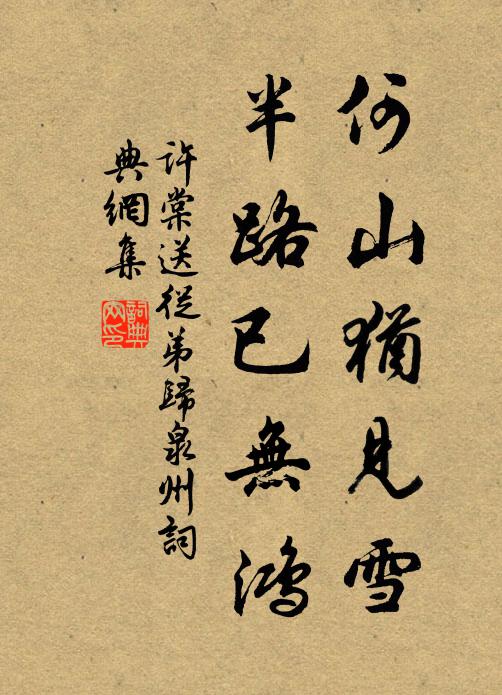 何山猶見雪
半路已無鴻
許棠送從弟歸泉州詞
典網集
詞典
網印